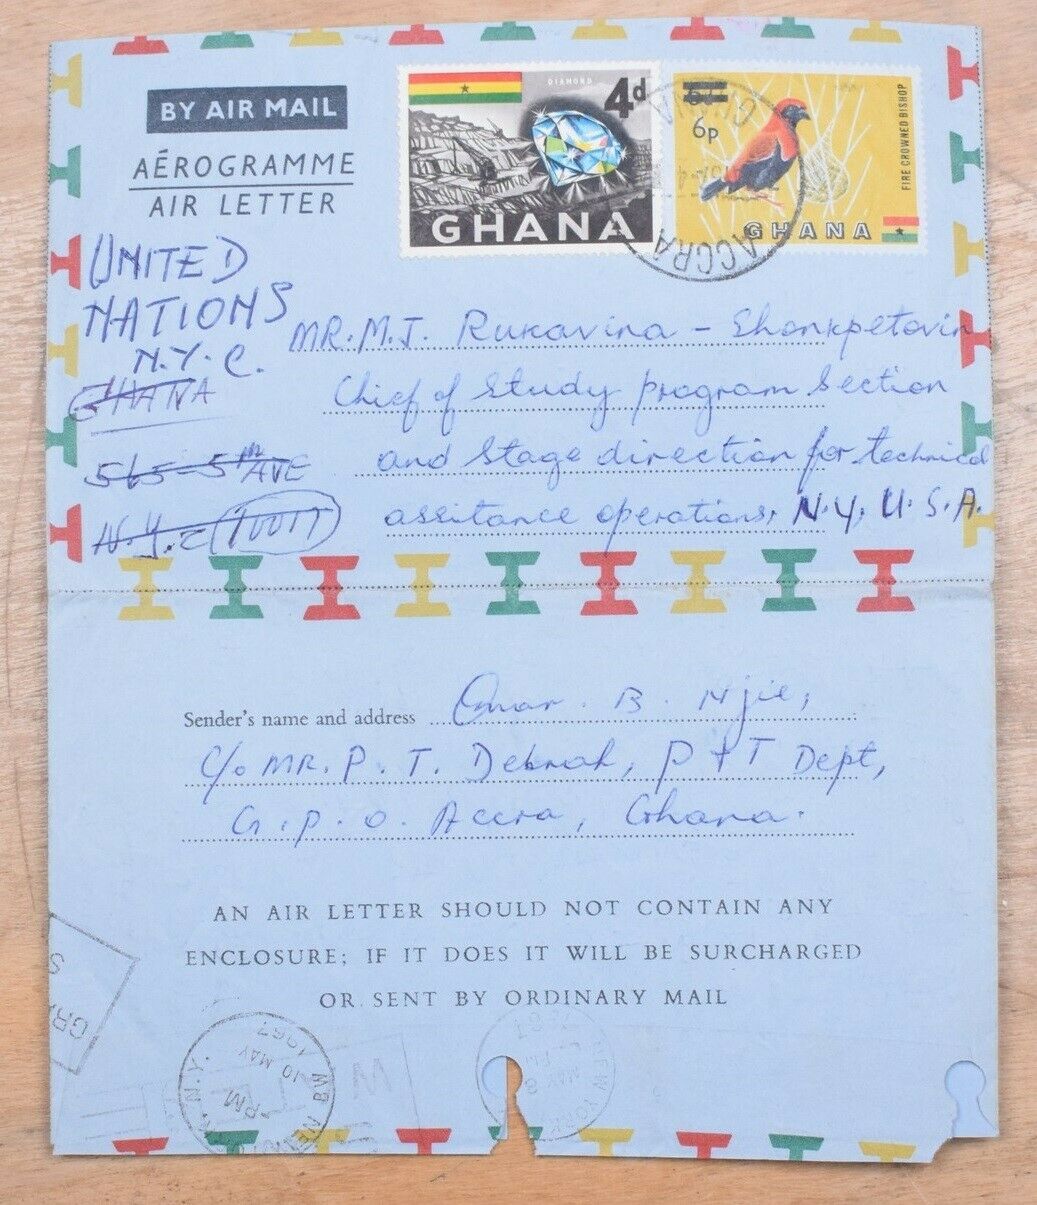 BY AIR MAIL
AÉROGRAMME
AIR LETTER
DIAMOND
4d
GHANA
6p
FIRE CROWNED BISHOP
GHANA
ACCRA
GHANA
UNITED
NATIONS
N.Y.C.
GHANA
565-5th AVE
N.Y.C 10017
MR. M. J. Rukavina - Shonkpetovin
Chief of Study program Section
and Stage direction for technical
assitance operations, N.Y. U.S.A.
Sender's name and address Omar. B. Njie,
c/o MR. P. T. Debrah, P & T Dept,
G.P.O. Accra, Ghana.
AN AIR LETTER SHOULD NOT CONTAIN ANY
ENCLOSURE; IF IT DOES IT WILL BE SURCHARGED
OR SENT BY ORDINARY MAIL
GRA
S
N.Y.
10 MAY
1967
PM
NEW YORK